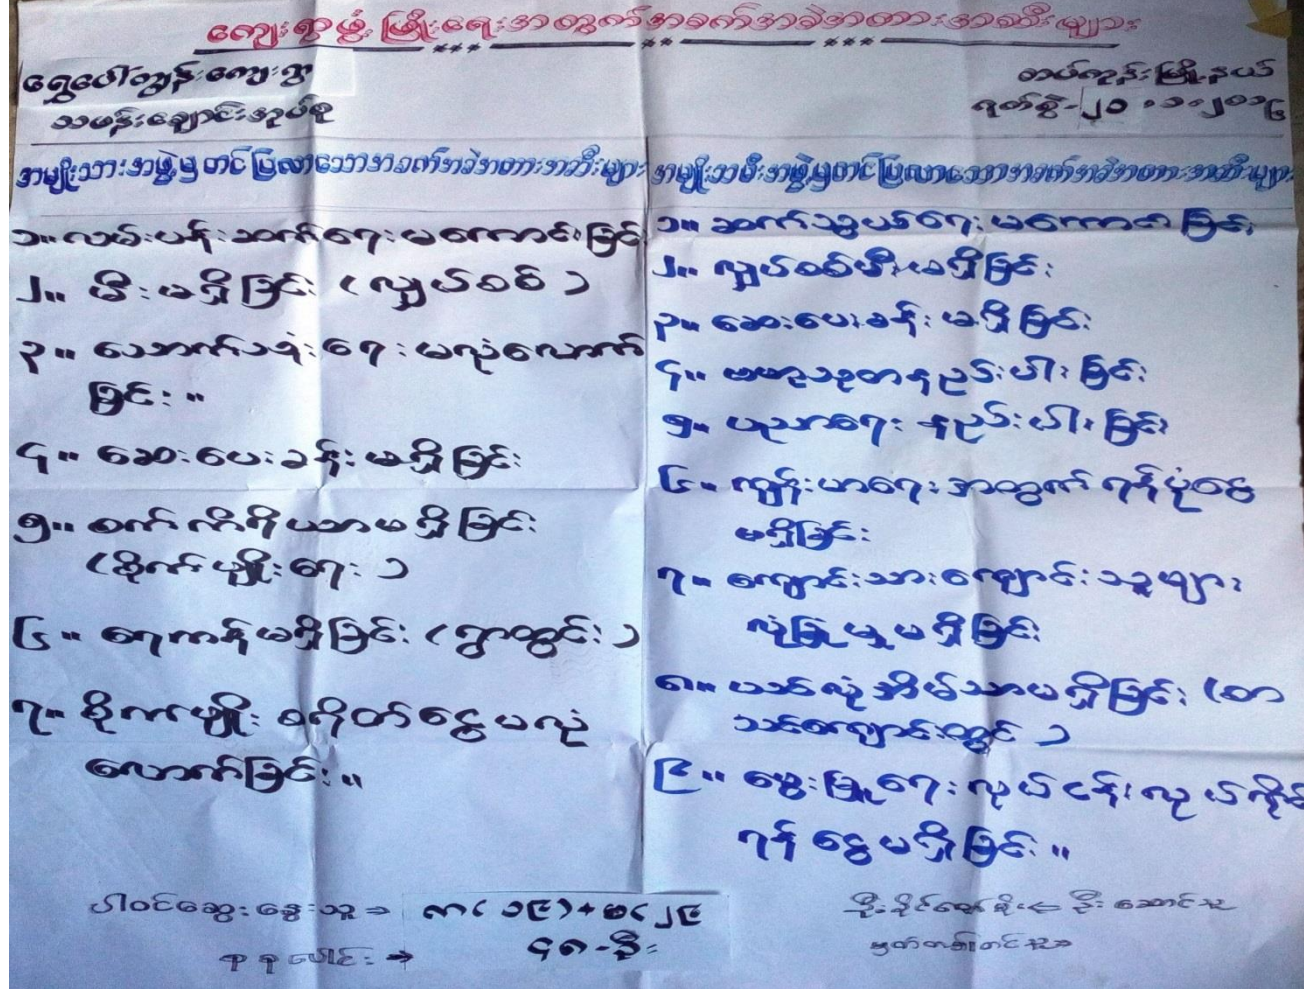 ကျေးရွာဖွံ့ဖြိုးရေးအတွက်အခက်အခဲအတားအဆီးများ
ရွှေပေါ်ကျွန်းကျေးရွာ
သမန်းချောင်းအုပ်စု
တပ်ကုန်းမြို့နယ်
ရက်စွဲ-၂၀.၁.၂၀၁၄
အမျိုးသားအဖွဲ့မှတင်ပြလာသောအခက်အခဲအတားအဆီးများ
၁။ လမ်းပန်းဆက်ရေးမကောင်းခြင်း
၂။ မီးမရှိခြင်း (လျှပ်စစ်)
၃။ သောက်သုံးရေမလုံလောက်
ခြင်း။
၄။ ဆေးပေးခန်းမရှိခြင်း
၅။ စက်ကိရိယာမရှိခြင်း
(စိုက်ပျိုးရေး)
၆။ ရေကန်မရှိခြင်း (ရွာတွင်း)
၇။ စိုက်ပျိုးစရိတ်ငွေမလုံ
လောက်ခြင်း။
အမျိုးသမီးအဖွဲ့မှတင်ပြလာသောအခက်အခဲအတားအဆီးများ
၁။ ဆက်သွယ်ရေးမကောင်းခြင်း
၂။ လျှပ်စစ်မီးမရှိခြင်း
၃။ ဆေးပေးခန်းမရှိခြင်း
၄။ ဗဟုသုတနည်းပါးခြင်း
၅။ ပညာရေးနည်းပါးခြင်း
၆။ ကျန်းမာရေးအတွက် ရန်ပုံငွေ
မရှိခြင်း
၇။ ကျောင်းသားကျောင်းသူများ
လုံခြုံမှုမရှိခြင်း
၈။ ယင်လုံအိမ်သာမရှိခြင်း (စာ
သင်ကျောင်းတွင်)
၉။ မွေးမြူရေးလုပ်ငန်းလုပ်ကိုင်
ရန်ငွေမရှိခြင်း။
ပါဝင်ဆွေးနွေးသူ ⇒ ကျ(၁၉)+မ(၂၉
စုစုပေါင်း → ၄၈-ဦး
ဦးဆောင်သူ
မှတ်တမ်းတင်သူ